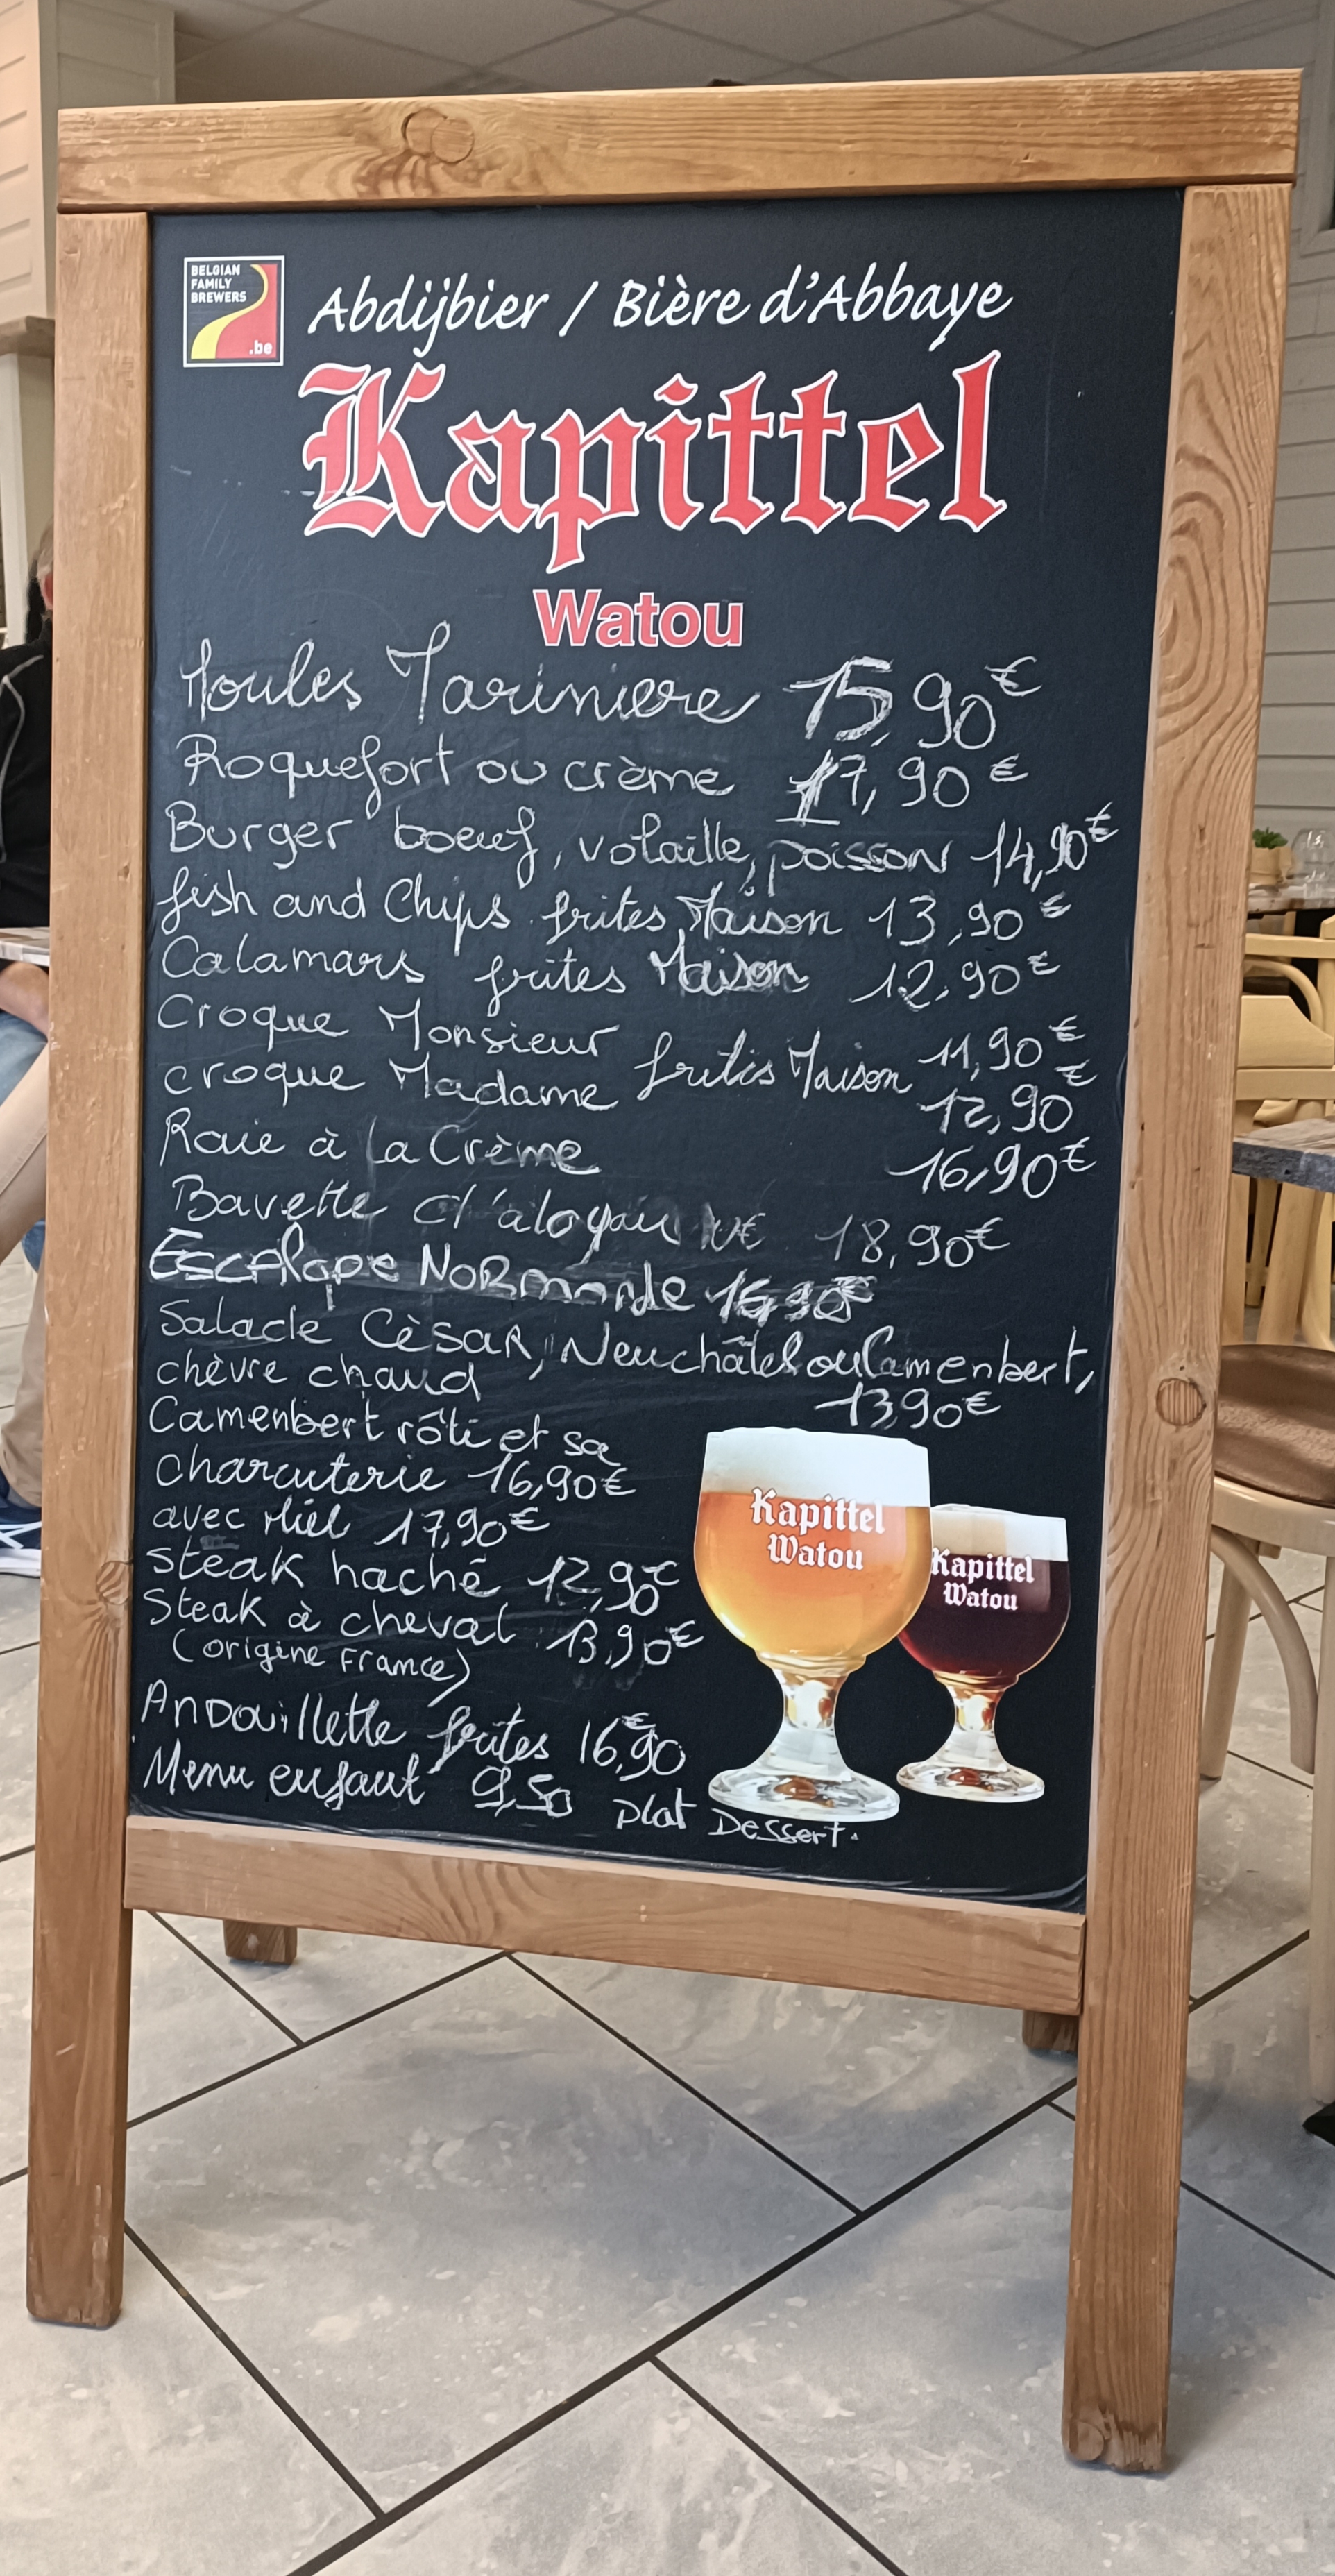 BELGIAN
FAMILY
BREWERS
.be
Abdijbier / Bière d'Abbaye
Kapittel
Watou
Moules Marinière 15,90€
Roquefort ou crème 17,90€
Burger boeuf, volaille, poisson 14,90€
fish and Chips frites Maison 13,90€
Calamars frites Maison 12,90€
Croque Monsieur frites Maison 11,90€
croque Madame 12,90€
Raie à la Crème 16,90€
Bavette d'aloyau 18,90€
Escalope NORmande 16,90€
Salade CèSAR, Neuchâtel ou Camenbert,
chèvre chaud 13,90€
Camenbert rôti et sa
charcuterie 16,90€
avec Miel 17,90€
Steak haché 12,90€
Steak à cheval 13,90€
(origine France)
ANDouillette frites 16,90€
Menu enfant 9,50 plat Dessert.
Kapittel
Watou
Kapittel
Watou